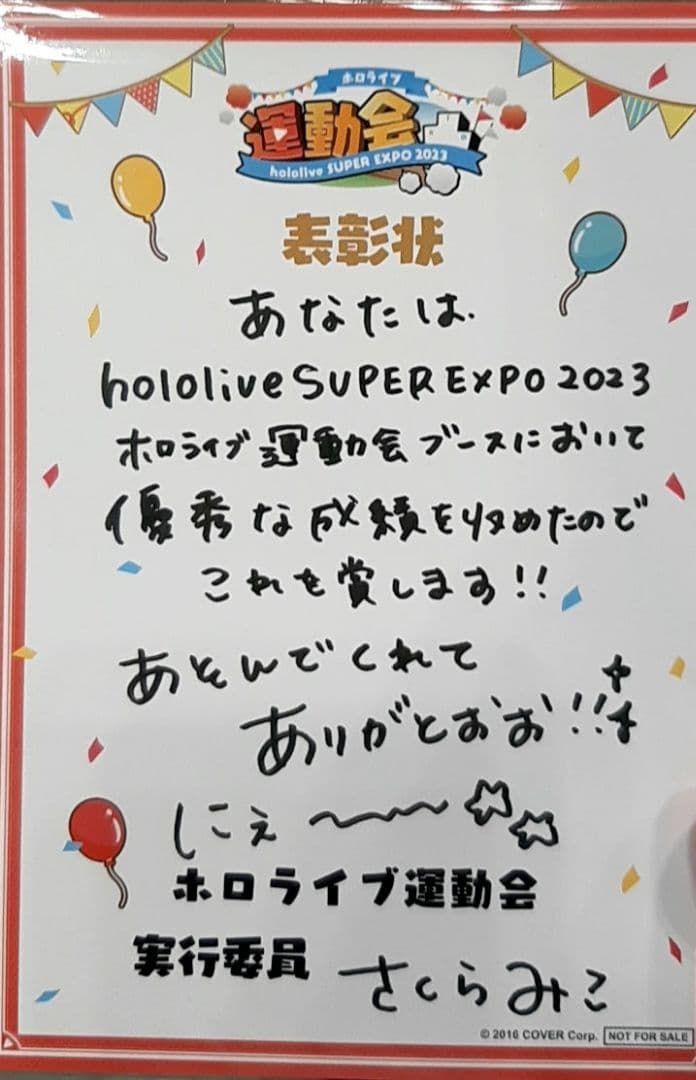 ホロライブ
運動会
hololive SUPER EXPO 2023
表彰状
あなたは.
hololive SUPER EXPO 2023
ホロライブ運動会ブースにおいて
優秀な成績を収めたので
これを賞します!!
あそんでくれて
ありがとおお!!
しにぇ〜〜〜☆☆
ホロライブ運動会
実行委員 さくらみこ
© 2016 COVER Corp. NOT FOR SALE